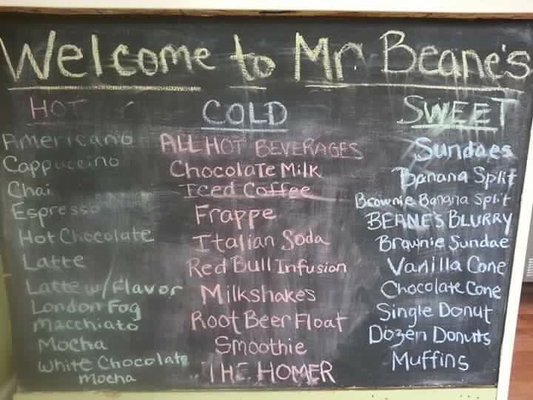 Welcome to Mr Beane's
HOT
Americano
Cappuccino
Chai
Espresso
Hot Chocolate
Latte
Latte w/ Flavor
London Fog
Macchiato
Mocha
White Chocolate
Mocha
COLD
ALL HOT BEVERAGES
Chocolate Milk
Iced Coffee
Frappe
Italian Soda
Red Bull Infusion
Milkshakes
Root Beer Float
Smoothie
THE HOMER
SWEET
Sundaes
Banana Split
Brownie Banana Split
BEANE'S BLURRY
Brownie Sundae
Vanilla Cone
Chocolate Cone
Single Donut
Dozen Donuts
Muffins